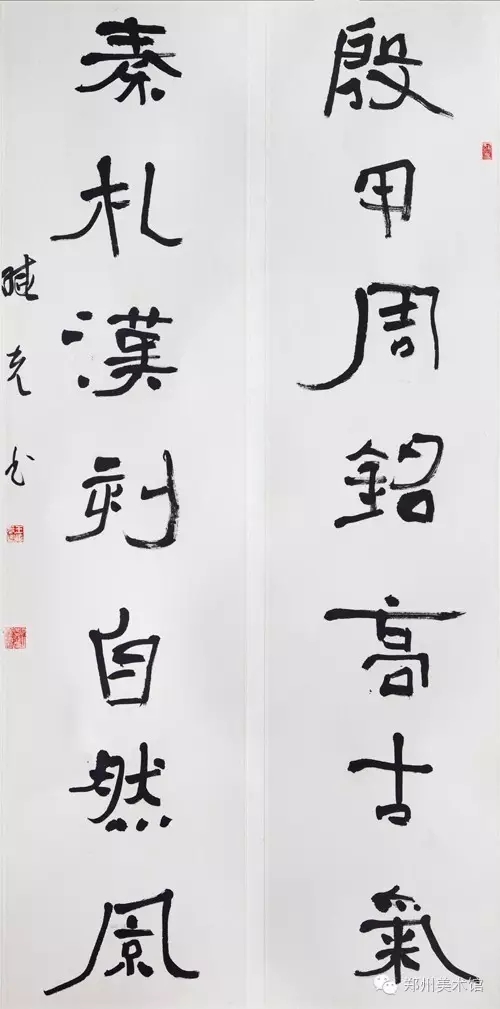 殷甲周銘高古氣
秦札漢刻自然風
克书
郑州美术馆